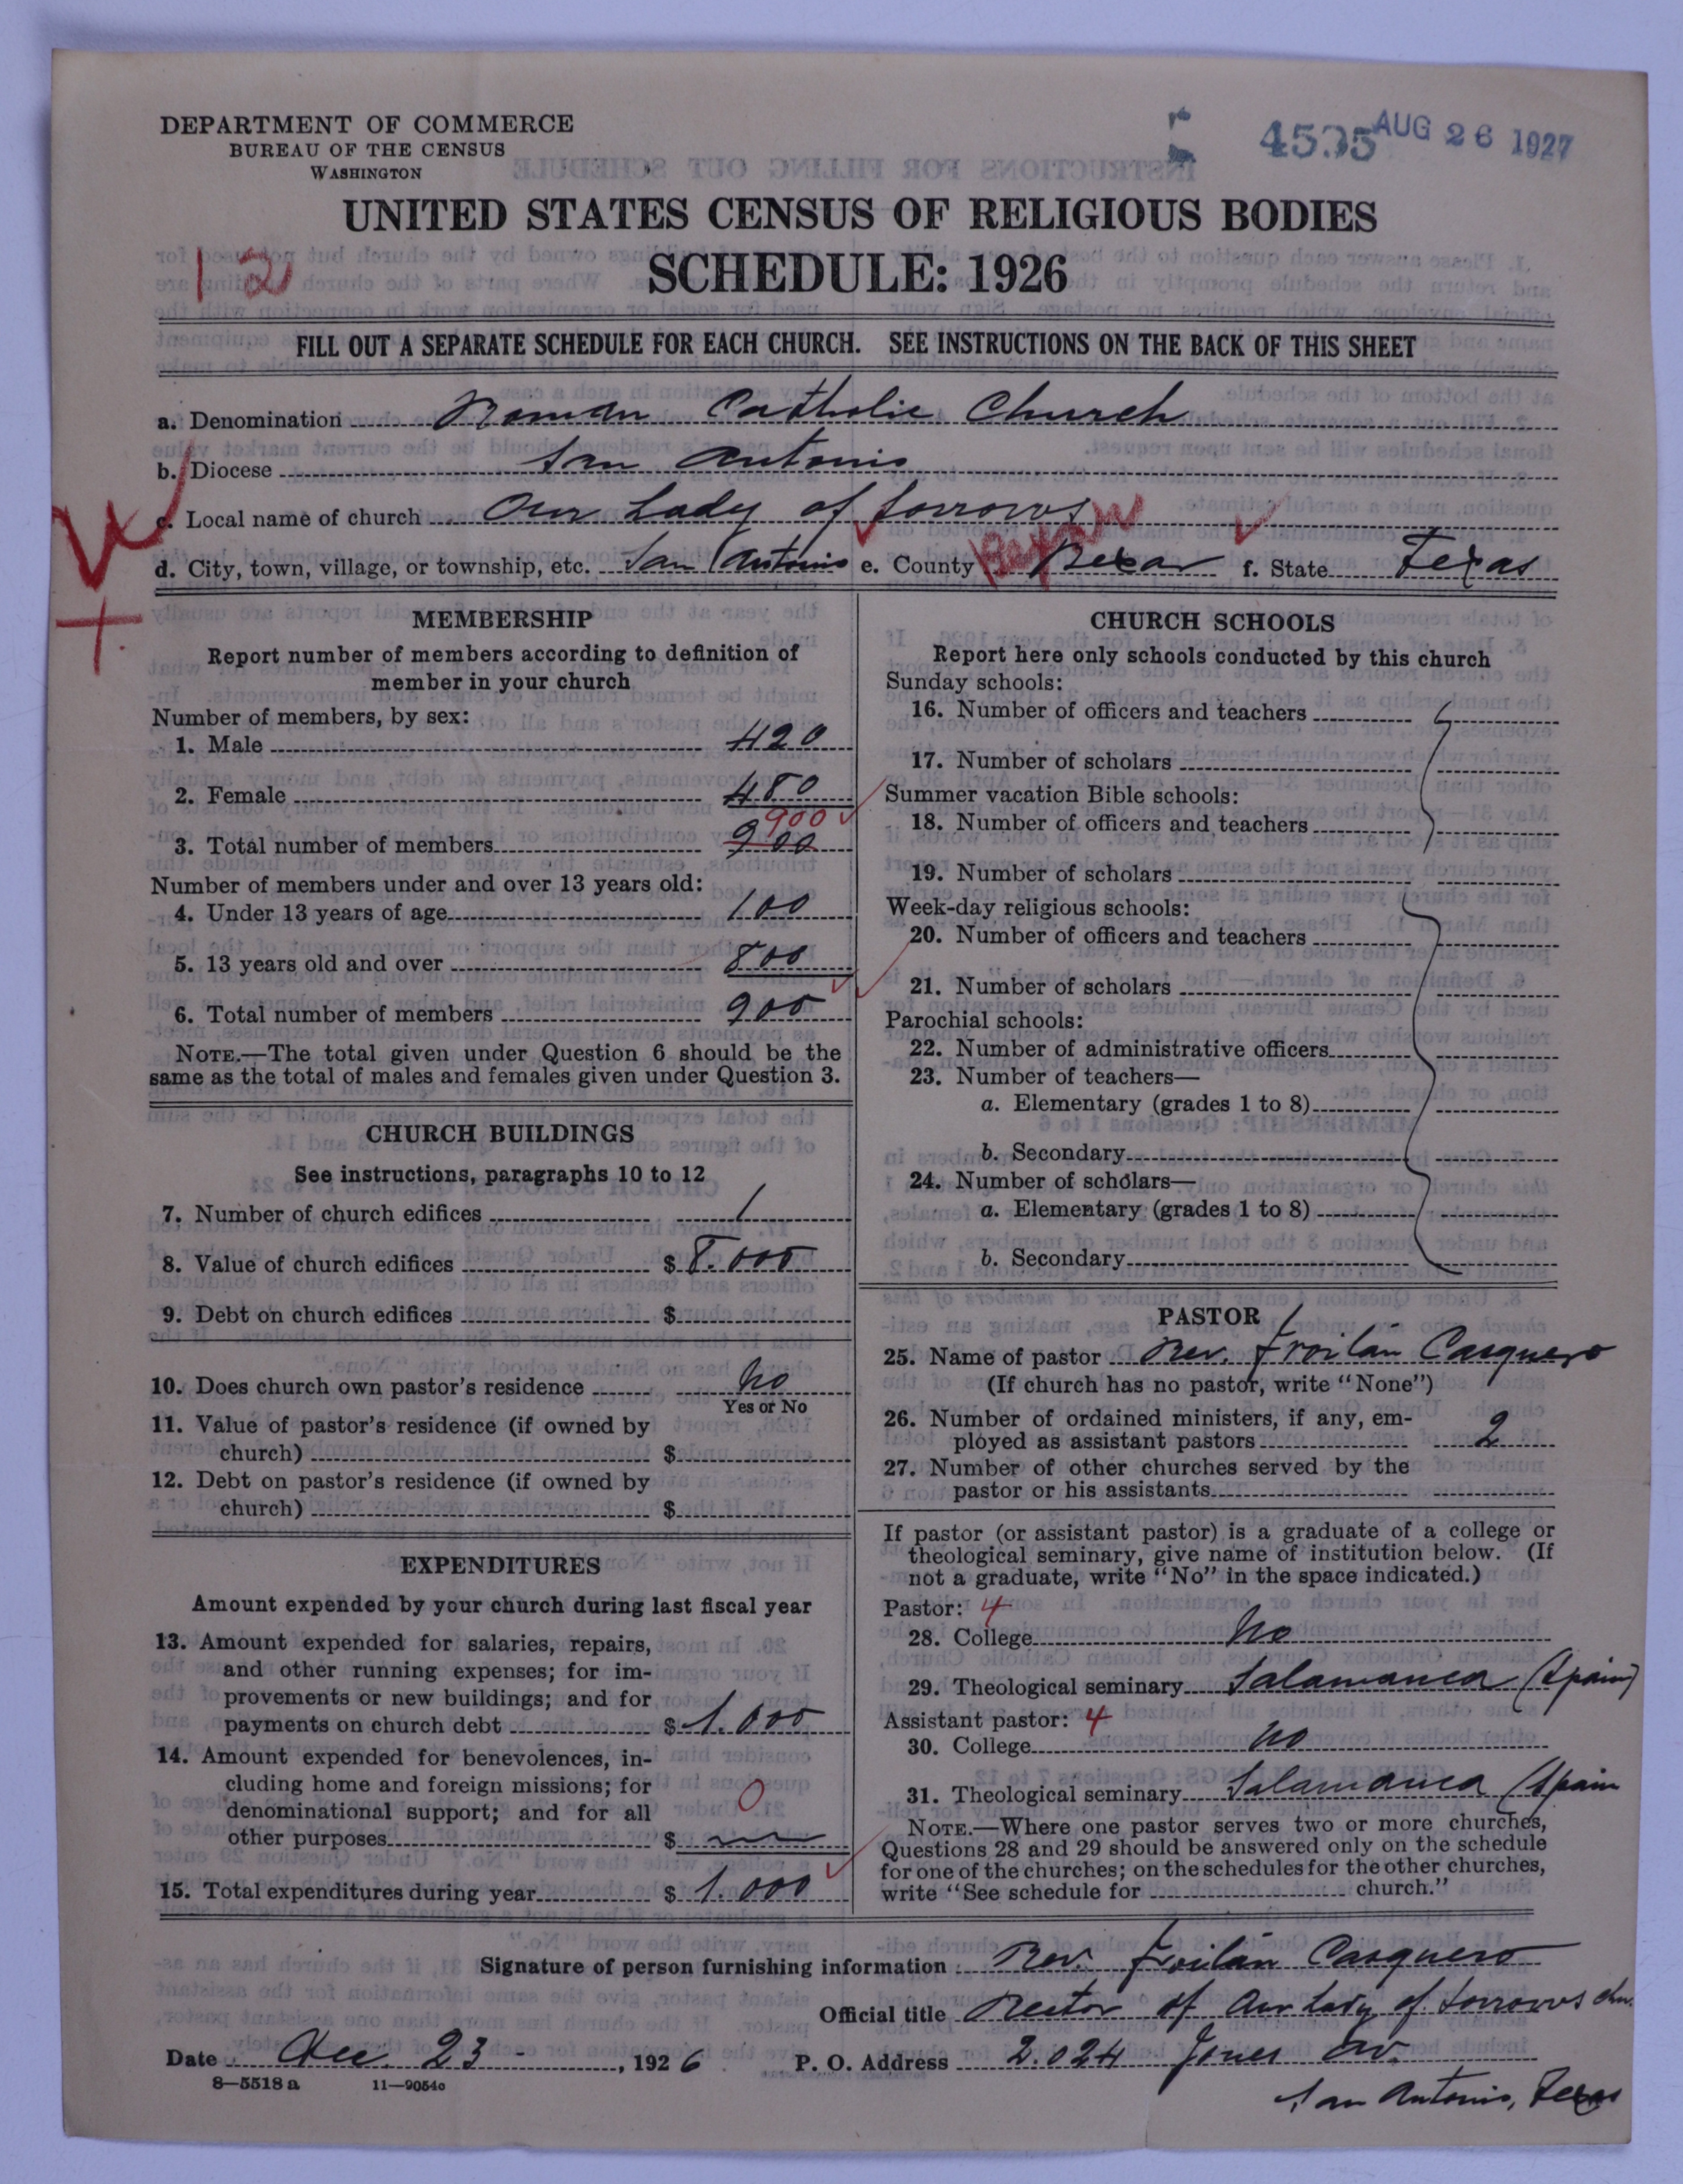 DEPARTMENT OF COMMERCE
BUREAU OF THE CENSUS
WASHINGTON
AUG 26 1927
UNITED STATES CENSUS OF RELIGIOUS BODIES
SCHEDULE: 1926
12
FILL OUT A SEPARATE SCHEDULE FOR EACH CHURCH. SEE INSTRUCTIONS ON THE BACK OF THIS SHEET
a. Denomination Roman Catholic Church
b. Diocese San Antonio
c. Local name of church Our Lady of Sorrows
d. City, town, village, or township, etc. San Antonio e. County Bexar f. State Texas
MEMBERSHIP
Report number of members according to definition of
member in your church
Number of members, by sex:
1. Male 420
2. Female 480
900
3. Total number of members 900
Number of members under and over 13 years old:
4. Under 13 years of age 100
5. 13 years old and over 800
6. Total number of members 900
NOTE.—The total given under Question 6 should be the
same as the total of males and females given under Question 3.
CHURCH BUILDINGS
See instructions, paragraphs 10 to 12
7. Number of church edifices 1
8. Value of church edifices $ 8.000
9. Debt on church edifices $
10. Does church own pastor's residence No
Yes or No
11. Value of pastor's residence (if owned by
church) $
12. Debt on pastor's residence (if owned by
church) $
EXPENDITURES
Amount expended by your church during last fiscal year
13. Amount expended for salaries, repairs,
and other running expenses; for im-
provements or new buildings; and for
payments on church debt $ 1.000
14. Amount expended for benevolences, in-
cluding home and foreign missions; for
denominational support; and for all 0
other purposes $
15. Total expenditures during year $ 1.000
CHURCH SCHOOLS
Report here only schools conducted by this church
Sunday schools:
16. Number of officers and teachers
17. Number of scholars
Summer vacation Bible schools:
18. Number of officers and teachers
19. Number of scholars
Week-day religious schools:
20. Number of officers and teachers
21. Number of scholars
Parochial schools:
22. Number of administrative officers
23. Number of teachers—
a. Elementary (grades 1 to 8)
b. Secondary
24. Number of scholars—
a. Elementary (grades 1 to 8)
b. Secondary
PASTOR
25. Name of pastor Rev. Froilán Casquero
(If church has no pastor, write "None")
26. Number of ordained ministers, if any, em-
ployed as assistant pastors 2
27. Number of other churches served by the
pastor or his assistants
If pastor (or assistant pastor) is a graduate of a college or
theological seminary, give name of institution below. (If
not a graduate, write "No" in the space indicated.)
Pastor: 4
28. College No
29. Theological seminary Salamanca (Spain)
Assistant pastor: 4
30. College No
31. Theological seminary Salamanca (Spain
NOTE.—Where one pastor serves two or more churches,
Questions 28 and 29 should be answered only on the schedule
for one of the churches; on the schedules for the other churches,
write "See schedule for church."
Signature of person furnishing information Rev. Froilán Casquero
Official title Rector of Our Lady of Sorrows chu.
Date Dec. 23 , 1926 P. O. Address 2.024 Jones Av.
8—5518 a 11—9054c
San Antonio, Texas